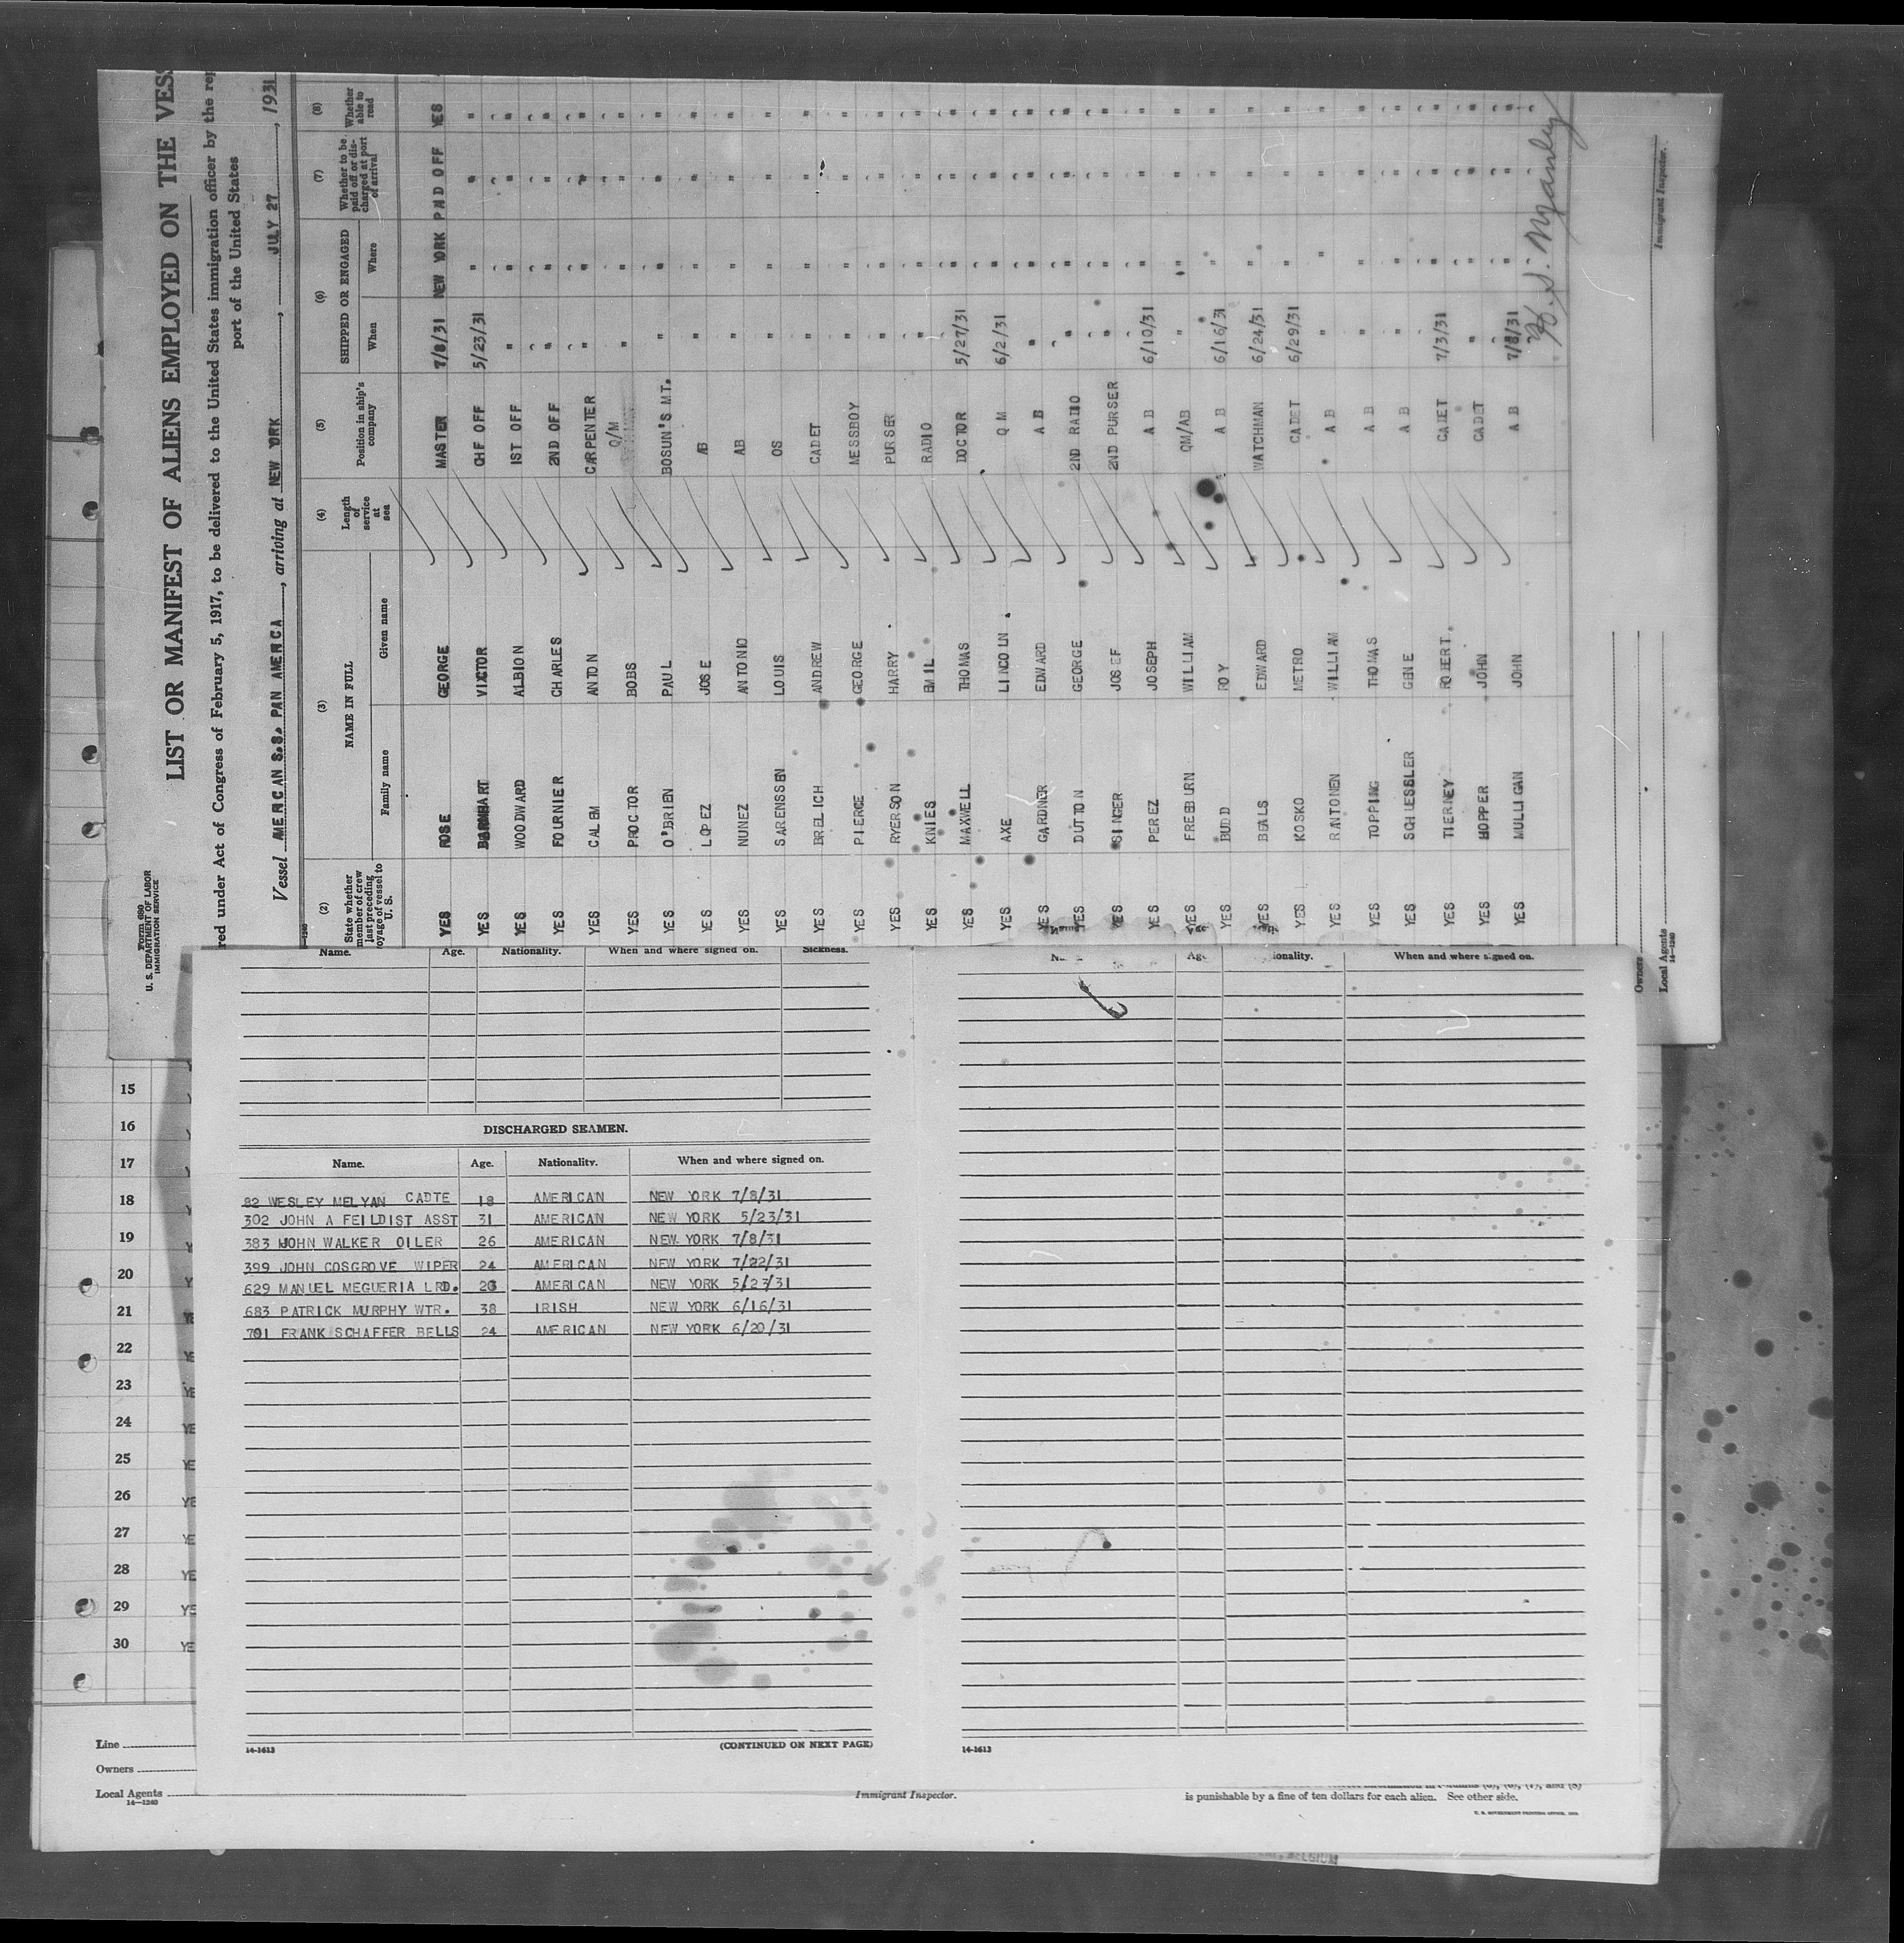 Form 680
U. S. DEPARTMENT OF LABOR
IMMIGRATION SERVICE
LIST OR MANIFEST OF ALIENS EMPLOYED ON THE VESS
red under Act of Congress of February 5, 1917, to be delivered to the United States immigration officer by the rep
port of the United States
Vessel AMERICAN S.S. PAN AMERICA, arriving at NEW YORK, JULY 27, 1931
(2) (3) (4) (5) (6) (7) (8)
State whether member of crew last preceding voyage of vessel to U. S.
NAME IN FULL
Family name Given name
Length of service at sea
Position in ship's company
SHIPPED OR ENGAGED
When Where
Whether to be paid off or discharged at port of arrival
Whether able to read
YES ROSE GEORGE MASTER 7/8/31 NEW YORK PAID OFF YES
YES BARNHART VICTOR CHF OFF 5/23/31 " " "
YES WOODWARD ALBION 1ST OFF " " " "
YES FOURNIER CHARLES 2ND OFF " " " "
YES CALEM ANTON CARPENTER " " " "
YES PROCTOR BOBS Q/M " " " "
YES O'BRIEN PAUL BOSUN'S MT. " " " "
YES LOPEZ JOSE AB " " " "
YES NUNEZ ANTONIO AB " " " "
YES SARENSSEN LOUIS OS " " " "
YES BRELICH ANDREW CADET " " " "
YES PIERCE GEORGE MESSBOY " " " "
YES RYERSON HARRY PURSER " " " "
YES KNIES EMIL RADIO " " " "
YES MAXWELL THOMAS DOCTOR 5/27/31 " " "
YES AXE LINCOLN Q M 6/2/31 " " "
YES GARDNER EDWARD A B " " " "
YES DUTTON GEORGE 2ND RADIO " " " "
YES SINGER JOSEF 2ND PURSER " " " "
YES PEREZ JOSEPH A B 6/10/31 " " "
YES FREEBURN WILLIAM QM/AB " " " "
YES BUDD ROY A B 6/16/31 " " "
YES BEALS EDWARD WATCHMAN 6/24/31 " " "
YES KOSKO METRO CADET 6/29/31 " " "
YES RANTONEN WILLIAM A B " " " "
YES TOPPING THOMAS A B " " " "
YES SCHLESSLER GENE A B " " " "
YES TIERNEY ROBERT. CADET 7/3/31 " " "
YES HOPPER JOHN CADET " " " "
YES MULLIGAN JOHN A B 7/8/31 " " "
Immigrant Inspector.
Owners
Local Agents
14-1240
Name. Age. Nationality. When and where signed on. Sickness.
DISCHARGED SEAMEN.
Name. Age. Nationality. When and where signed on.
82 WESLEY MELYAN CADTE 18 AMERICAN NEW YORK 7/8/31
302 JOHN A FEILDIST ASST 31 AMERICAN NEW YORK 5/23/31
383 JOHN WALKER OILER 26 AMERICAN NEW YORK 7/8/31
399 JOHN COSGROVE WIPER 24 AMERICAN NEW YORK 7/22/31
629 MANUEL MEGUERIA LRD. 26 AMERICAN NEW YORK 5/23/31
683 PATRICK MURPHY WTR. 38 IRISH NEW YORK 6/16/31
701 FRANK SCHAFFER BELLS 24 AMERICAN NEW YORK 6/20/31
14-1613 (CONTINUED ON NEXT PAGE)
onality. When and where signed on.
14-1613
15
16
17
18
19
20
21
22
23
24
25
26
27
28
29
30
Line
Owners
Local Agents
14-1240
Immigrant Inspector.
is punishable by a fine of ten dollars for each alien. See other side.
U. S. GOVERNMENT PRINTING OFFICE
BELGIUM